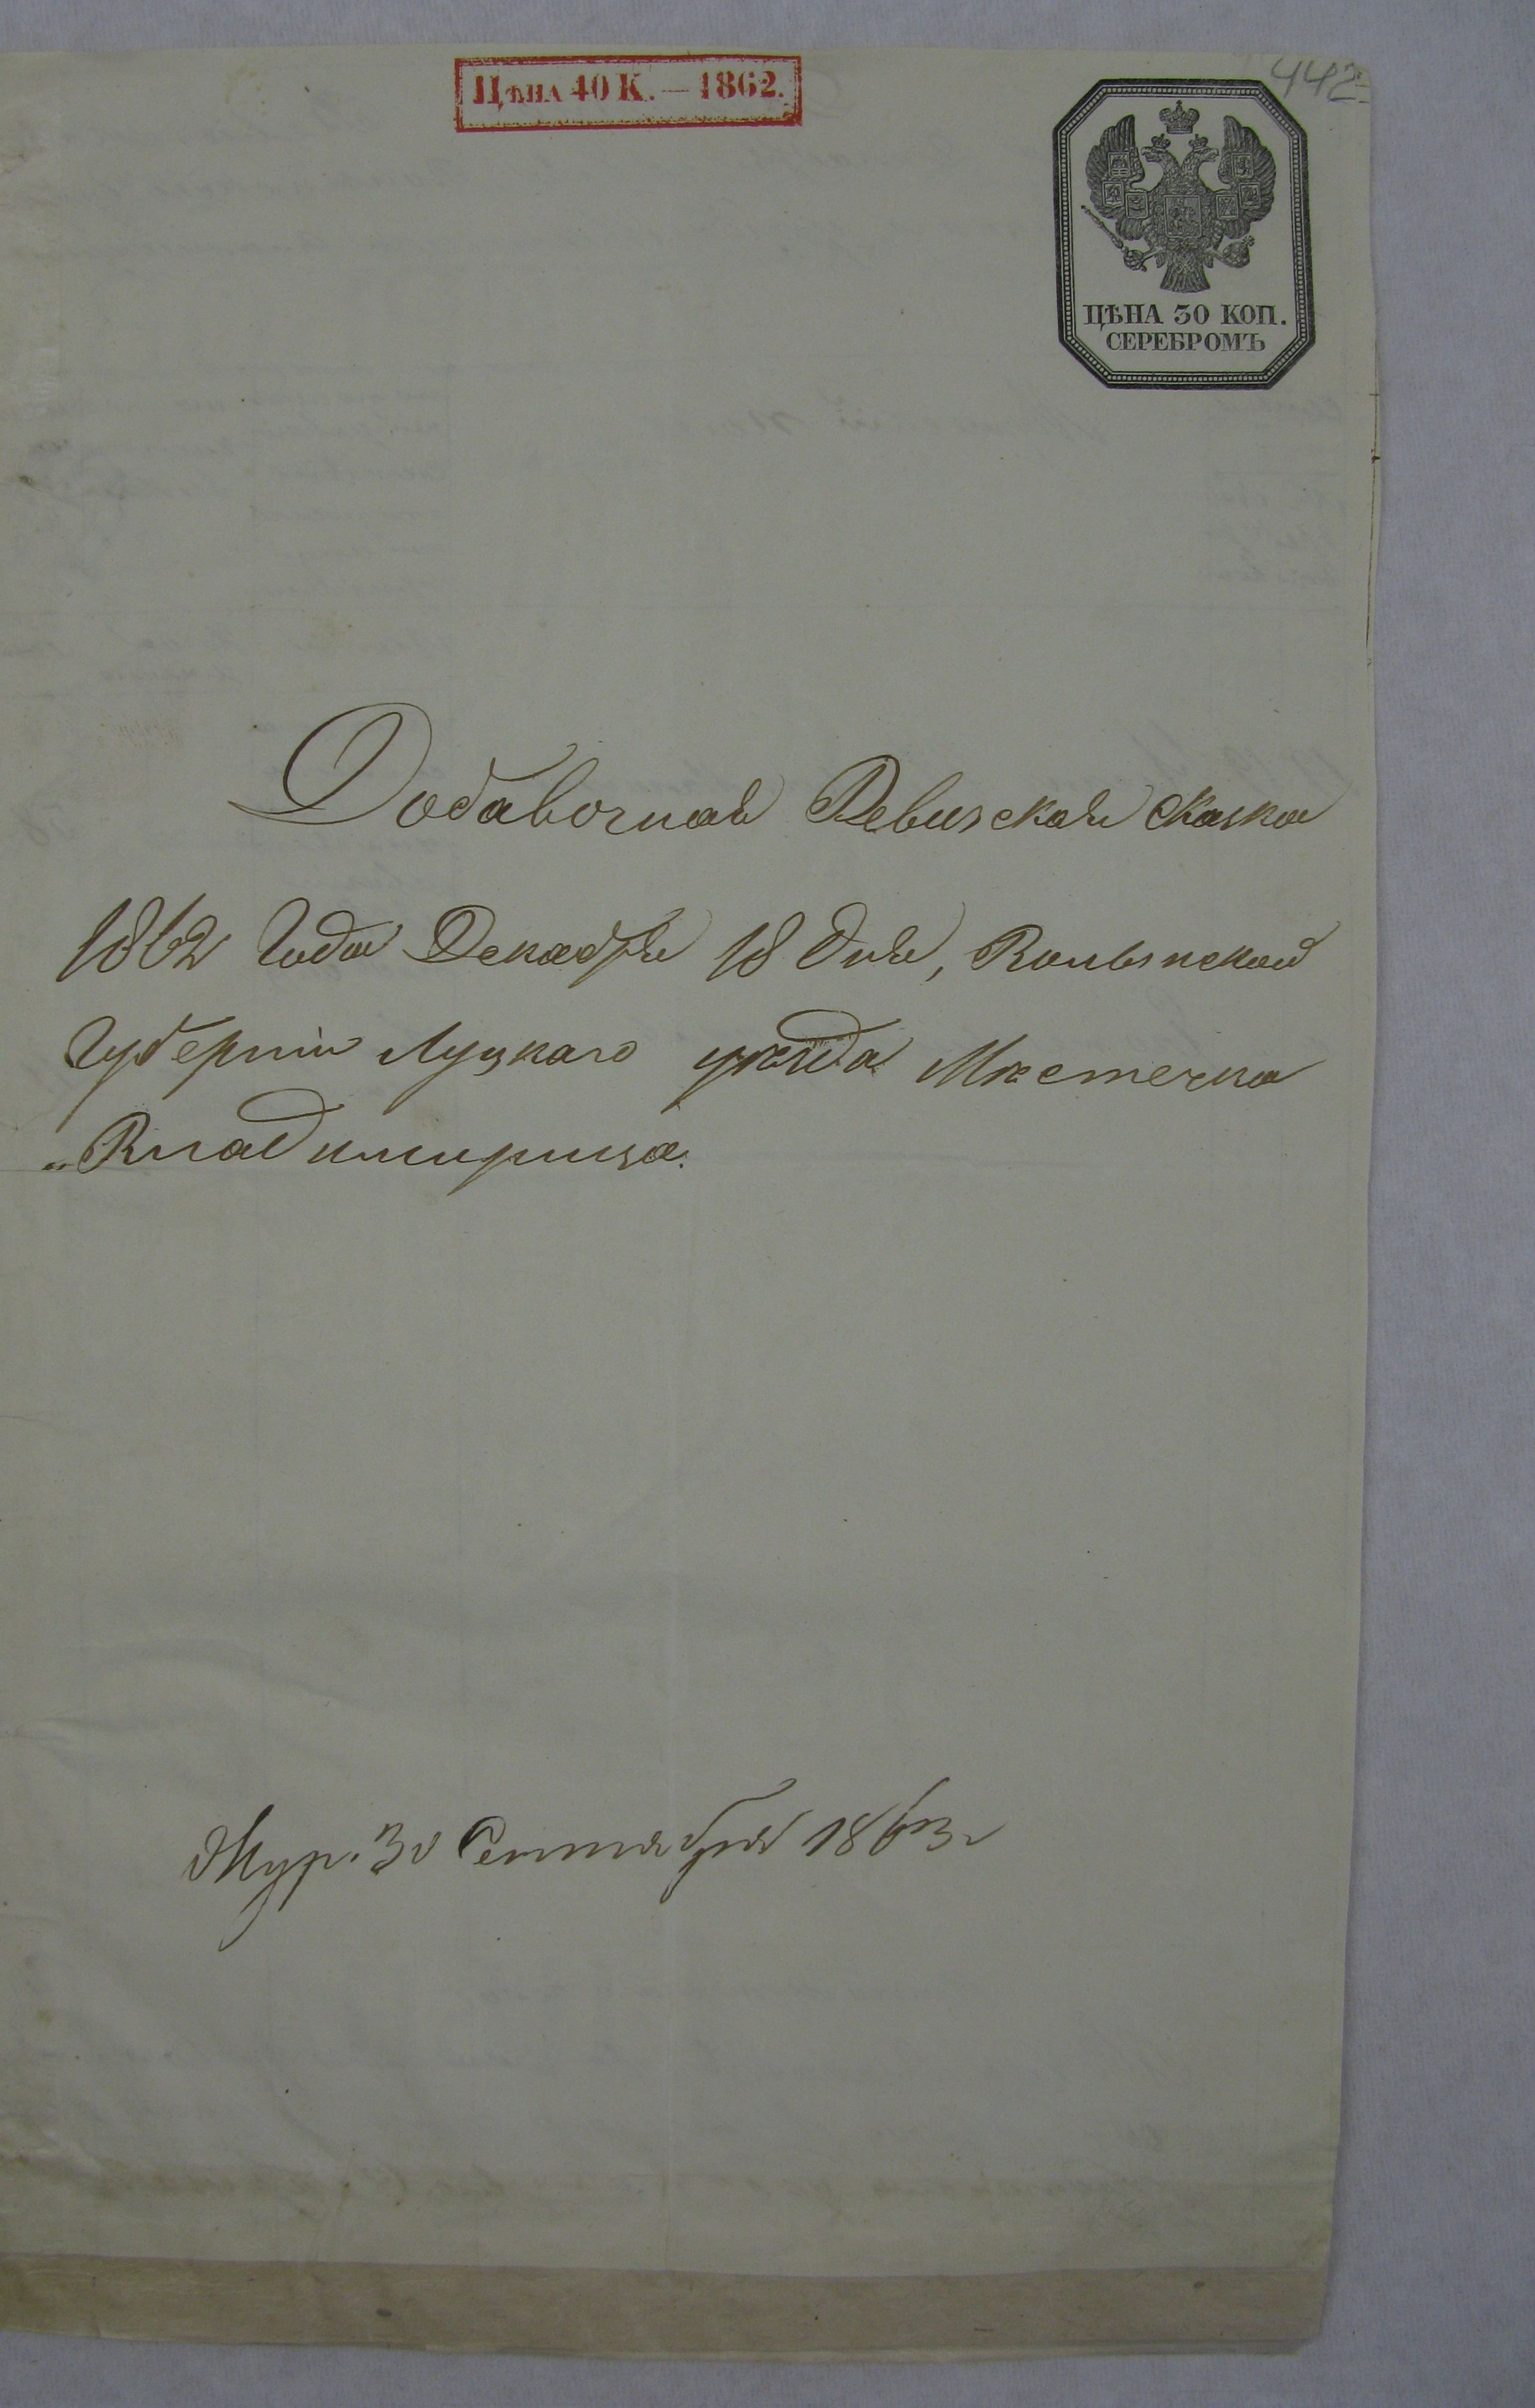 442
Цѣна 40 К. — 1862.
ЦѢНА 30 КОП.
СЕРЕБРОМЪ
Добавочная Ревизская сказка
1862 Года Декабря 18 дня, Волынской
Губерніи Луцкаго уѣзда Мѣстечка
„Владимирца.
Жур. 30 Сентября 1863 г